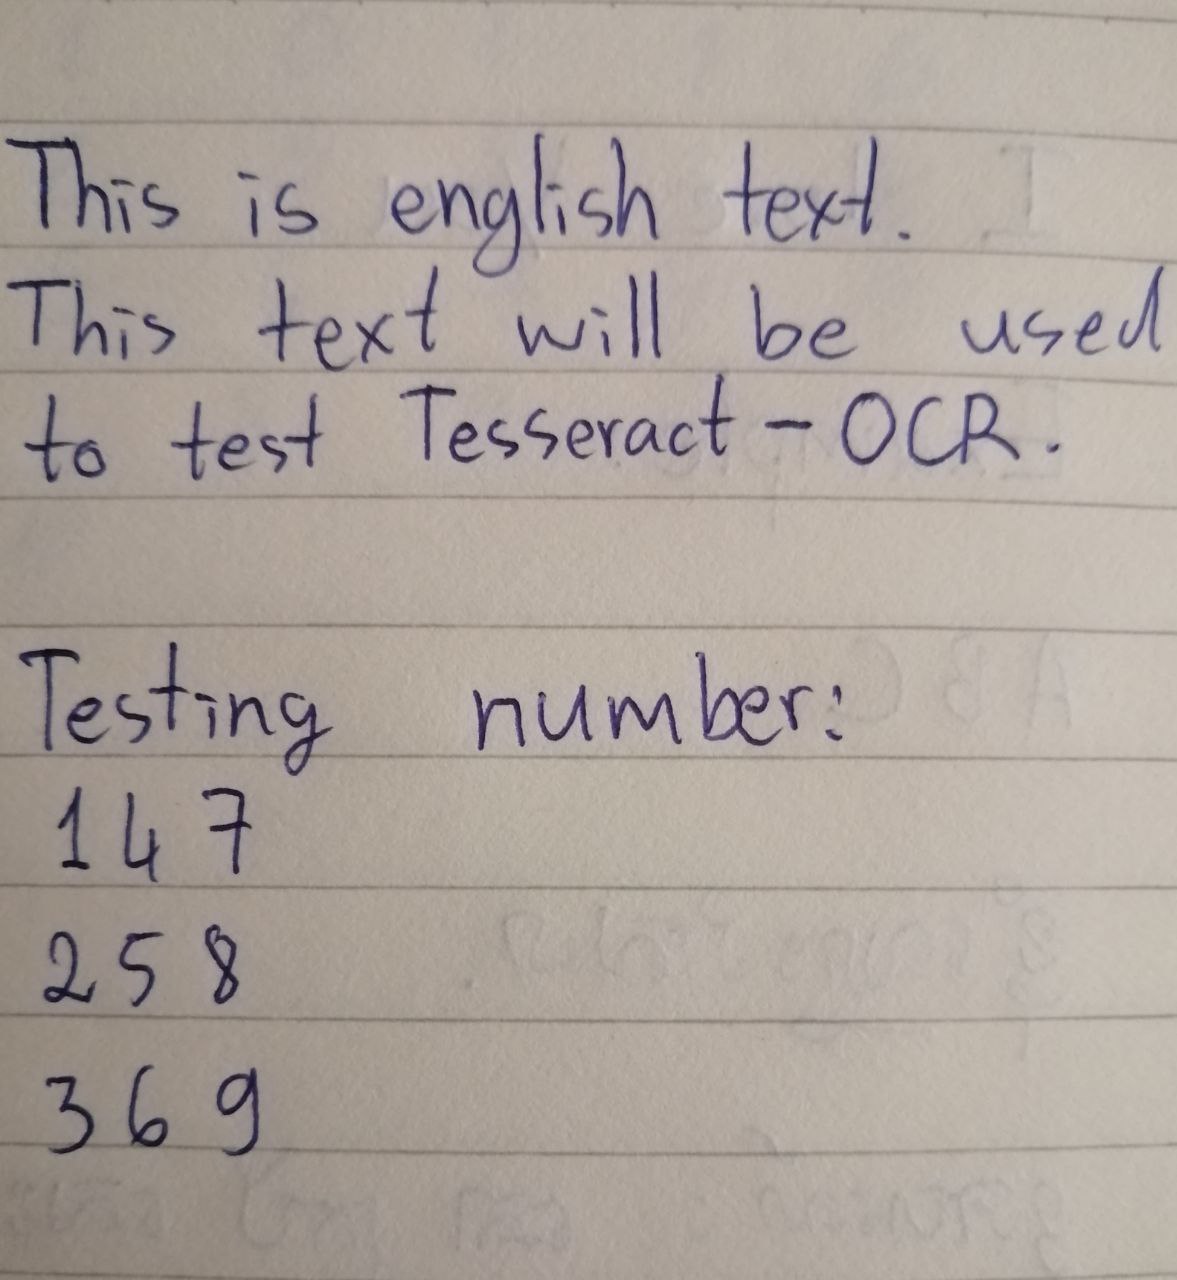 This is english text.
This text will be used
to test Tesseract - OCR.
Testing number:
1 4 7
2 5 8
3 6 9